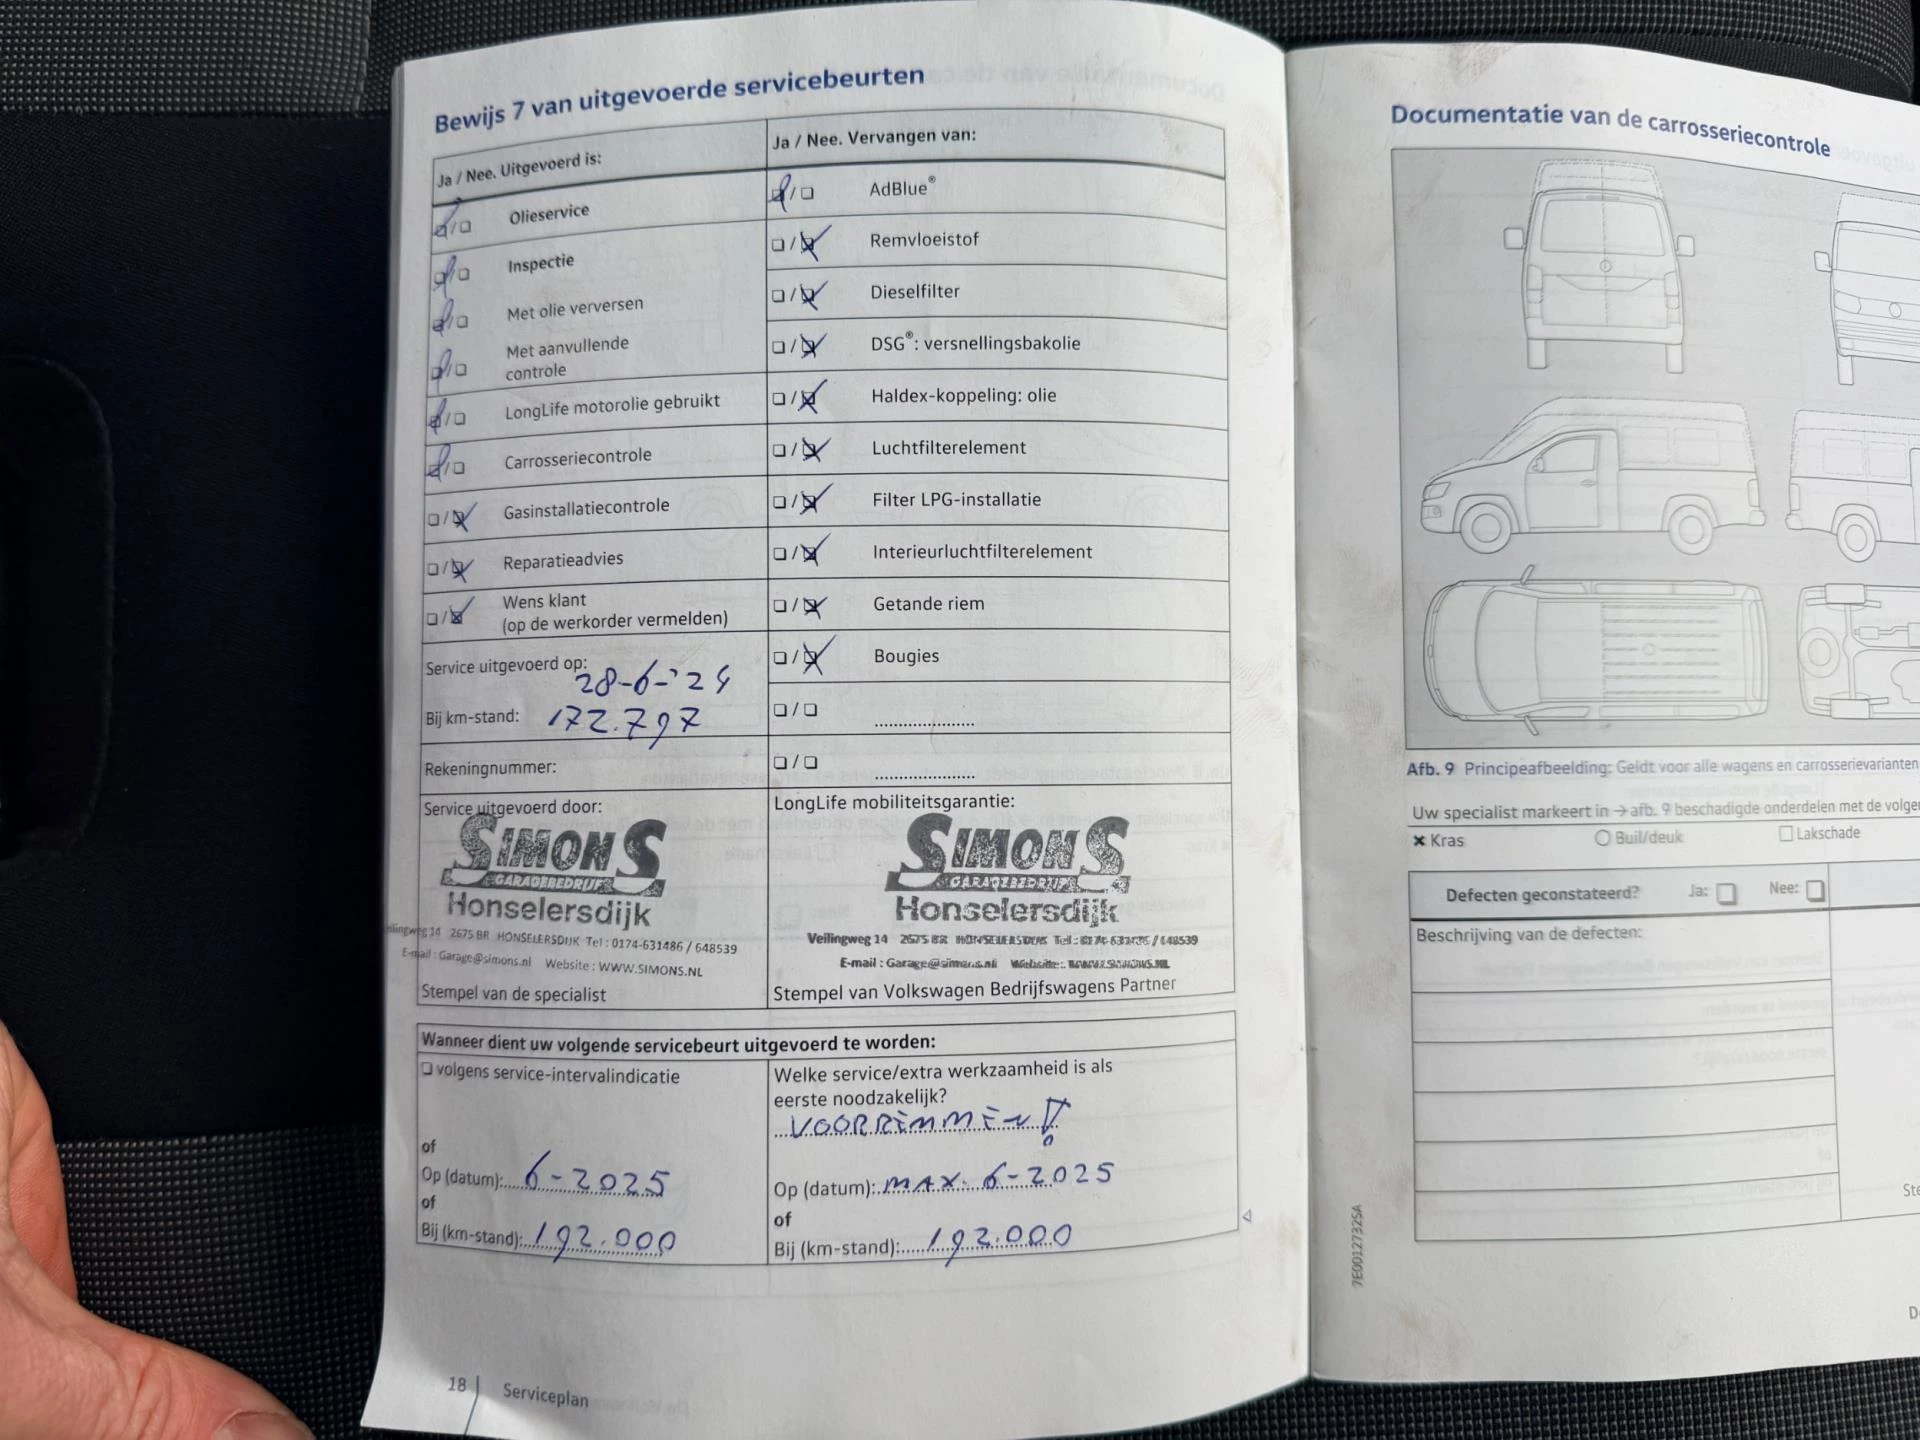 Bewijs 7 van uitgevoerde servicebeurten
Ja / Nee. Uitgevoerd is:
Olieservice
Inspectie
Met olie verversen
Met aanvullende
controle
LongLife motorolie gebruikt
Carrosseriecontrole
Gasinstallatiecontrole
Reparatieadvies
Wens klant
(op de werkorder vermelden)
Service uitgevoerd op:
28-6-'24
Bij km-stand: 172.797
Rekeningnummer:
Service uitgevoerd door:
SIMONS
GARAGEBEDRIJF
Honselersdijk
2675 BR HONSELERSDIJK Tel : 0174-631486 / 648539
E-mail : Garage@simons.nl Website : WWW.SIMONS.NL
Stempel van de specialist
Ja / Nee. Vervangen van:
AdBlue®
Remvloeistof
Dieselfilter
DSG®: versnellingsbakolie
Haldex-koppeling: olie
Luchtfilterelement
Filter LPG-installatie
Interieurluchtfilterelement
Getande riem
Bougies
LongLife mobiliteitsgarantie:
SIMONS
GARAGEBEDRIJF
Honselersdijk
Veilingweg 14 2675 BR HONSELERSDIJK Tel : 0174-631486 / 648539
E-mail : Garage@simons.nl Website : WWW.SIMONS.NL
Stempel van Volkswagen Bedrijfswagens Partner
Wanneer dient uw volgende servicebeurt uitgevoerd te worden:
volgens service-intervalindicatie
of
Op (datum): 6-2025
of
Bij (km-stand): 192.000
Welke service/extra werkzaamheid is als
eerste noodzakelijk?
VOORREMMEN!
Op (datum): MAX. 6-2025
of
Bij (km-stand): 192.000
18 Serviceplan
Documentatie van de carrosseriecontrole
Afb. 9 Principeafbeelding: Geldt voor alle wagens en carrosserievarianten
Uw specialist markeert in → afb. 9 beschadigde onderdelen met de
Kras Buil/deuk Lakschade
Defecten geconstateerd? Ja: Nee:
Beschrijving van de defecten:
7E0012732SA